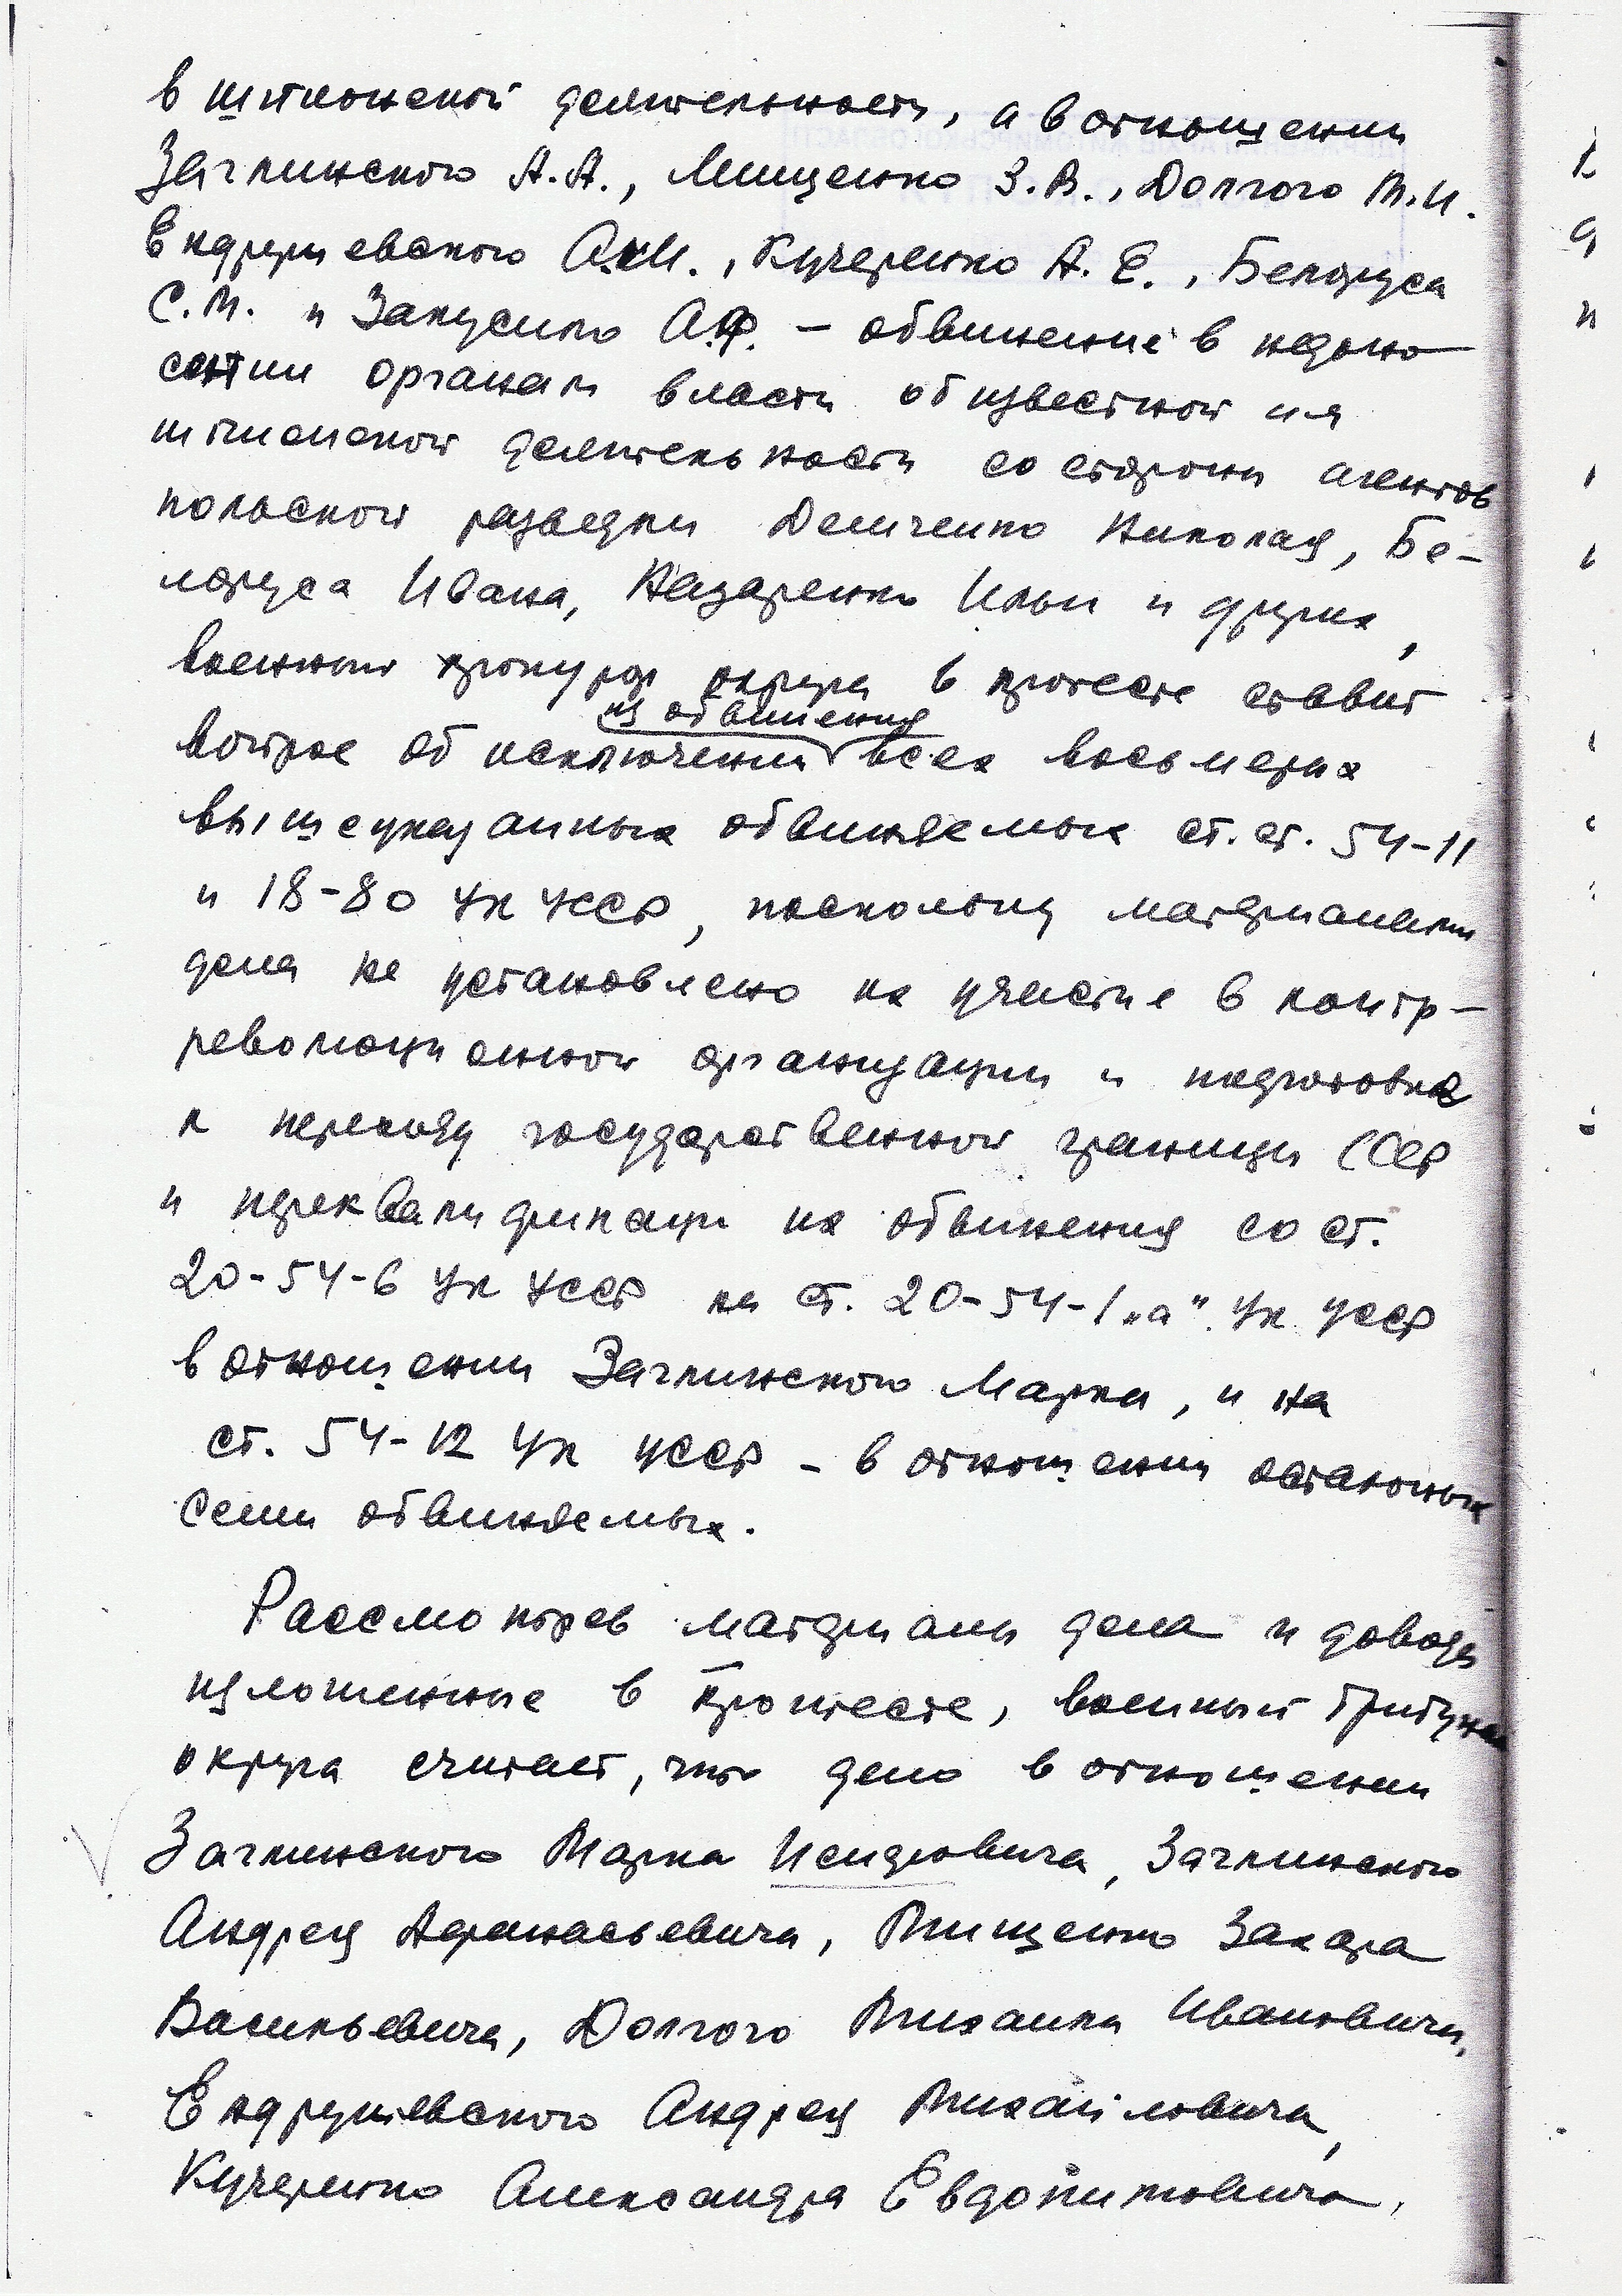 в шпионской деятельности, а в отношении
Зачлинского А.А., Мищенко З.В., Долгого М.И.
Ендрушевского А.М., Кучеренко А.Е., Белоруса
С.М. и Закусило А.Ф. – обвинение в недоно
сении органам власти об известной им
шпионской деятельности со стороны агентов
польской разведки Демченко Николая, Бе-
лоруса Ивана, Назаренко Ильи и других,
военный прокурор округа в протесте ставит
из обвинения
вопрос об исключении всех восьмерых
вышеуказанных обвиняемых ст. ст. 54-11
и 18-80 УК УССР, поскольку материалами
дела не установлено их участие в контр-
революционной организации и подготовке
к переходу государственной границы СССР
и переквалификации их обвинения со ст.
20-54-6 УК УССР на ст. 20-54-1 „а" УК УССР
в отношении Зачлинского Марка, и на
ст. 54-12 УК УССР – в отношении остальных
семи обвиняемых.
Рассмотрев материалы дела и доводы
изложенные в протесте, военный трибунал
округа считает, что дело в отношении
Зачлинского Марка Исидровича, Зачлинского
Андрея Афанасьевича, Мищенко Захара
Васильевича, Долгого Михаила Ивановича,
Ендрушевского Андрея Михайловича,
Кучеренко Александра Евдокимовича,